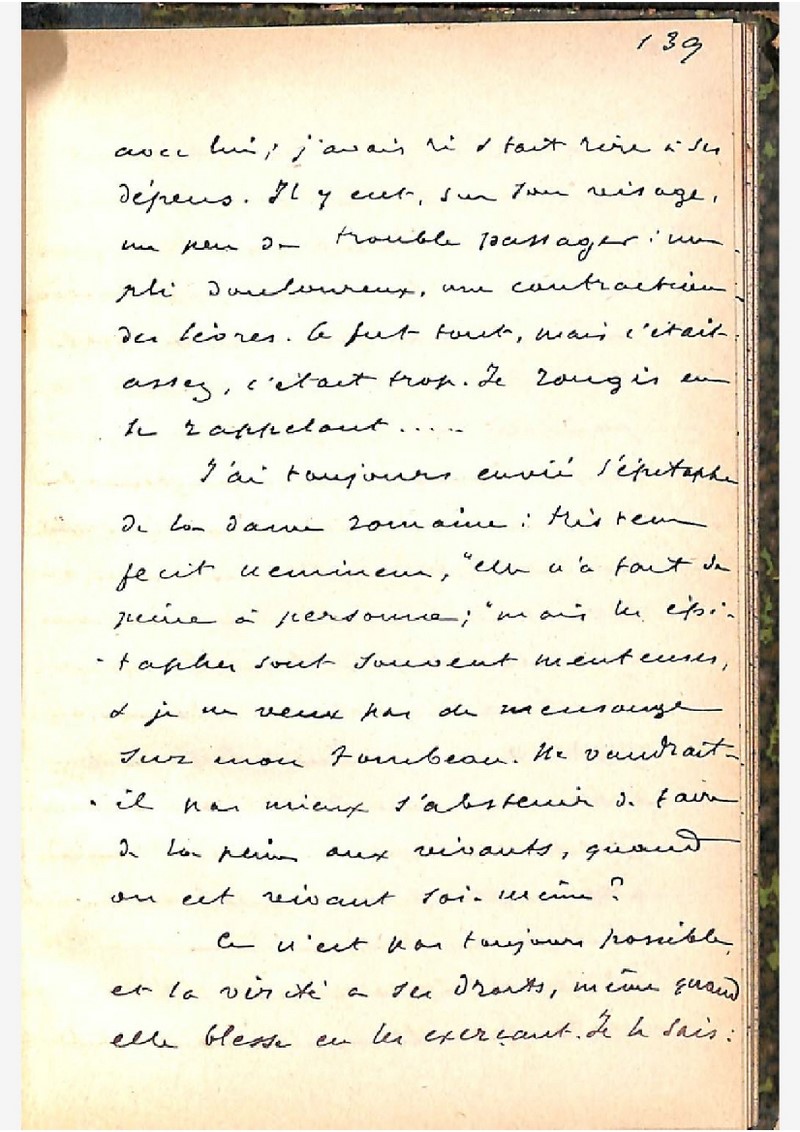 139
avec lui; j'avais ri & fait rire à ses
dépens. Il y eut, sur son visage,
un peu de trouble passager : un
pli douloureux, une contraction
des lèvres. Ce fut tout, mais c'était
assez, c'était trop. Je rougis en
le rappelant.....
J'ai toujours envié l'épitaphe
de la dame romaine : tristem
fecit neminem, "elle n'a fait de
peine à personne;" mais les épi-
-taphes sont souvent menteuses,
& je ne veux pas de mensonge
sur mon tombeau. Ne vaudrait-
-il pas mieux s'abstenir de faire
de la peine aux vivants, quand
on est vivant soi-même ?
Ce n'est pas toujours possible,
et la vérité a ses droits, même quand
elle blesse en les exerçant. Je le sais :